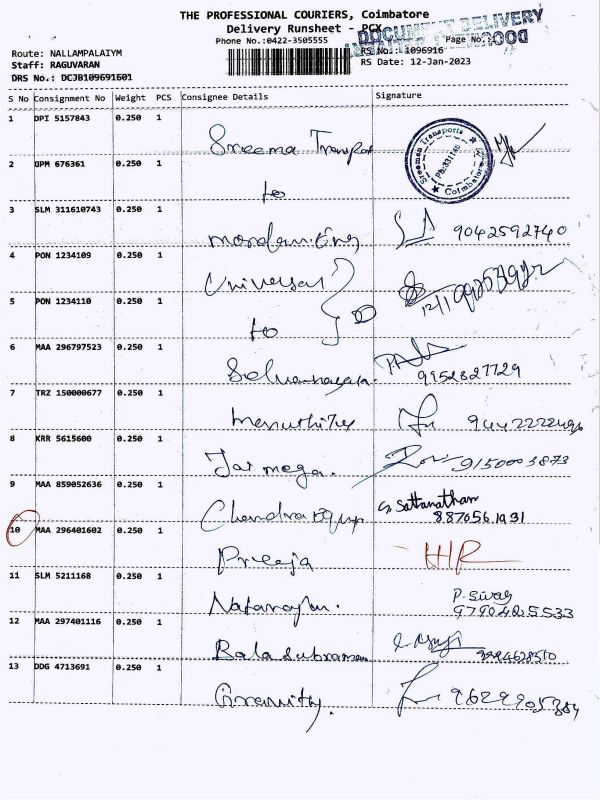 THE PROFESSIONAL COURIERS, Coimbatore
Phone No.:0422-3505555
Delivery Runsheet - PCX
DOCUMENT DELIVERY
Page No.
Route: NALLAMPALAIYM
RS No.: 1096916
Staff: RAGUVARAN
RS Date: 12-Jan-2023
DRS No.: DCJB109691601
S No Consignment No Weight PCS Consignee Details Signature
1 DPI 5157843 0.250 1 Sreema
Sreeman Transports Coimbatore
2 GPM 676361 0.250 1 to
3 SLM 311610743 0.250 1 9042592740
4 PON 1234109 0.250 1 Universal
5 PON 1234110 0.250 1 to
6 MAA 296797523 0.250 1 9952827729
7 TRZ 150000677 0.250 1
8 KRR 5615600 0.250 1 Jai mega. 9150003873
9 MAA 859052636 0.250 1 Chandra G. Sattanathan
8870561931
10 MAA 296401602 0.250 1 Preeja
11 SLM 5211168 0.250 1 P. Sivaj
9790425533
12 MAA 297401116 0.250 1 Bala Subraman
13 DDG 4713691 0.250 1